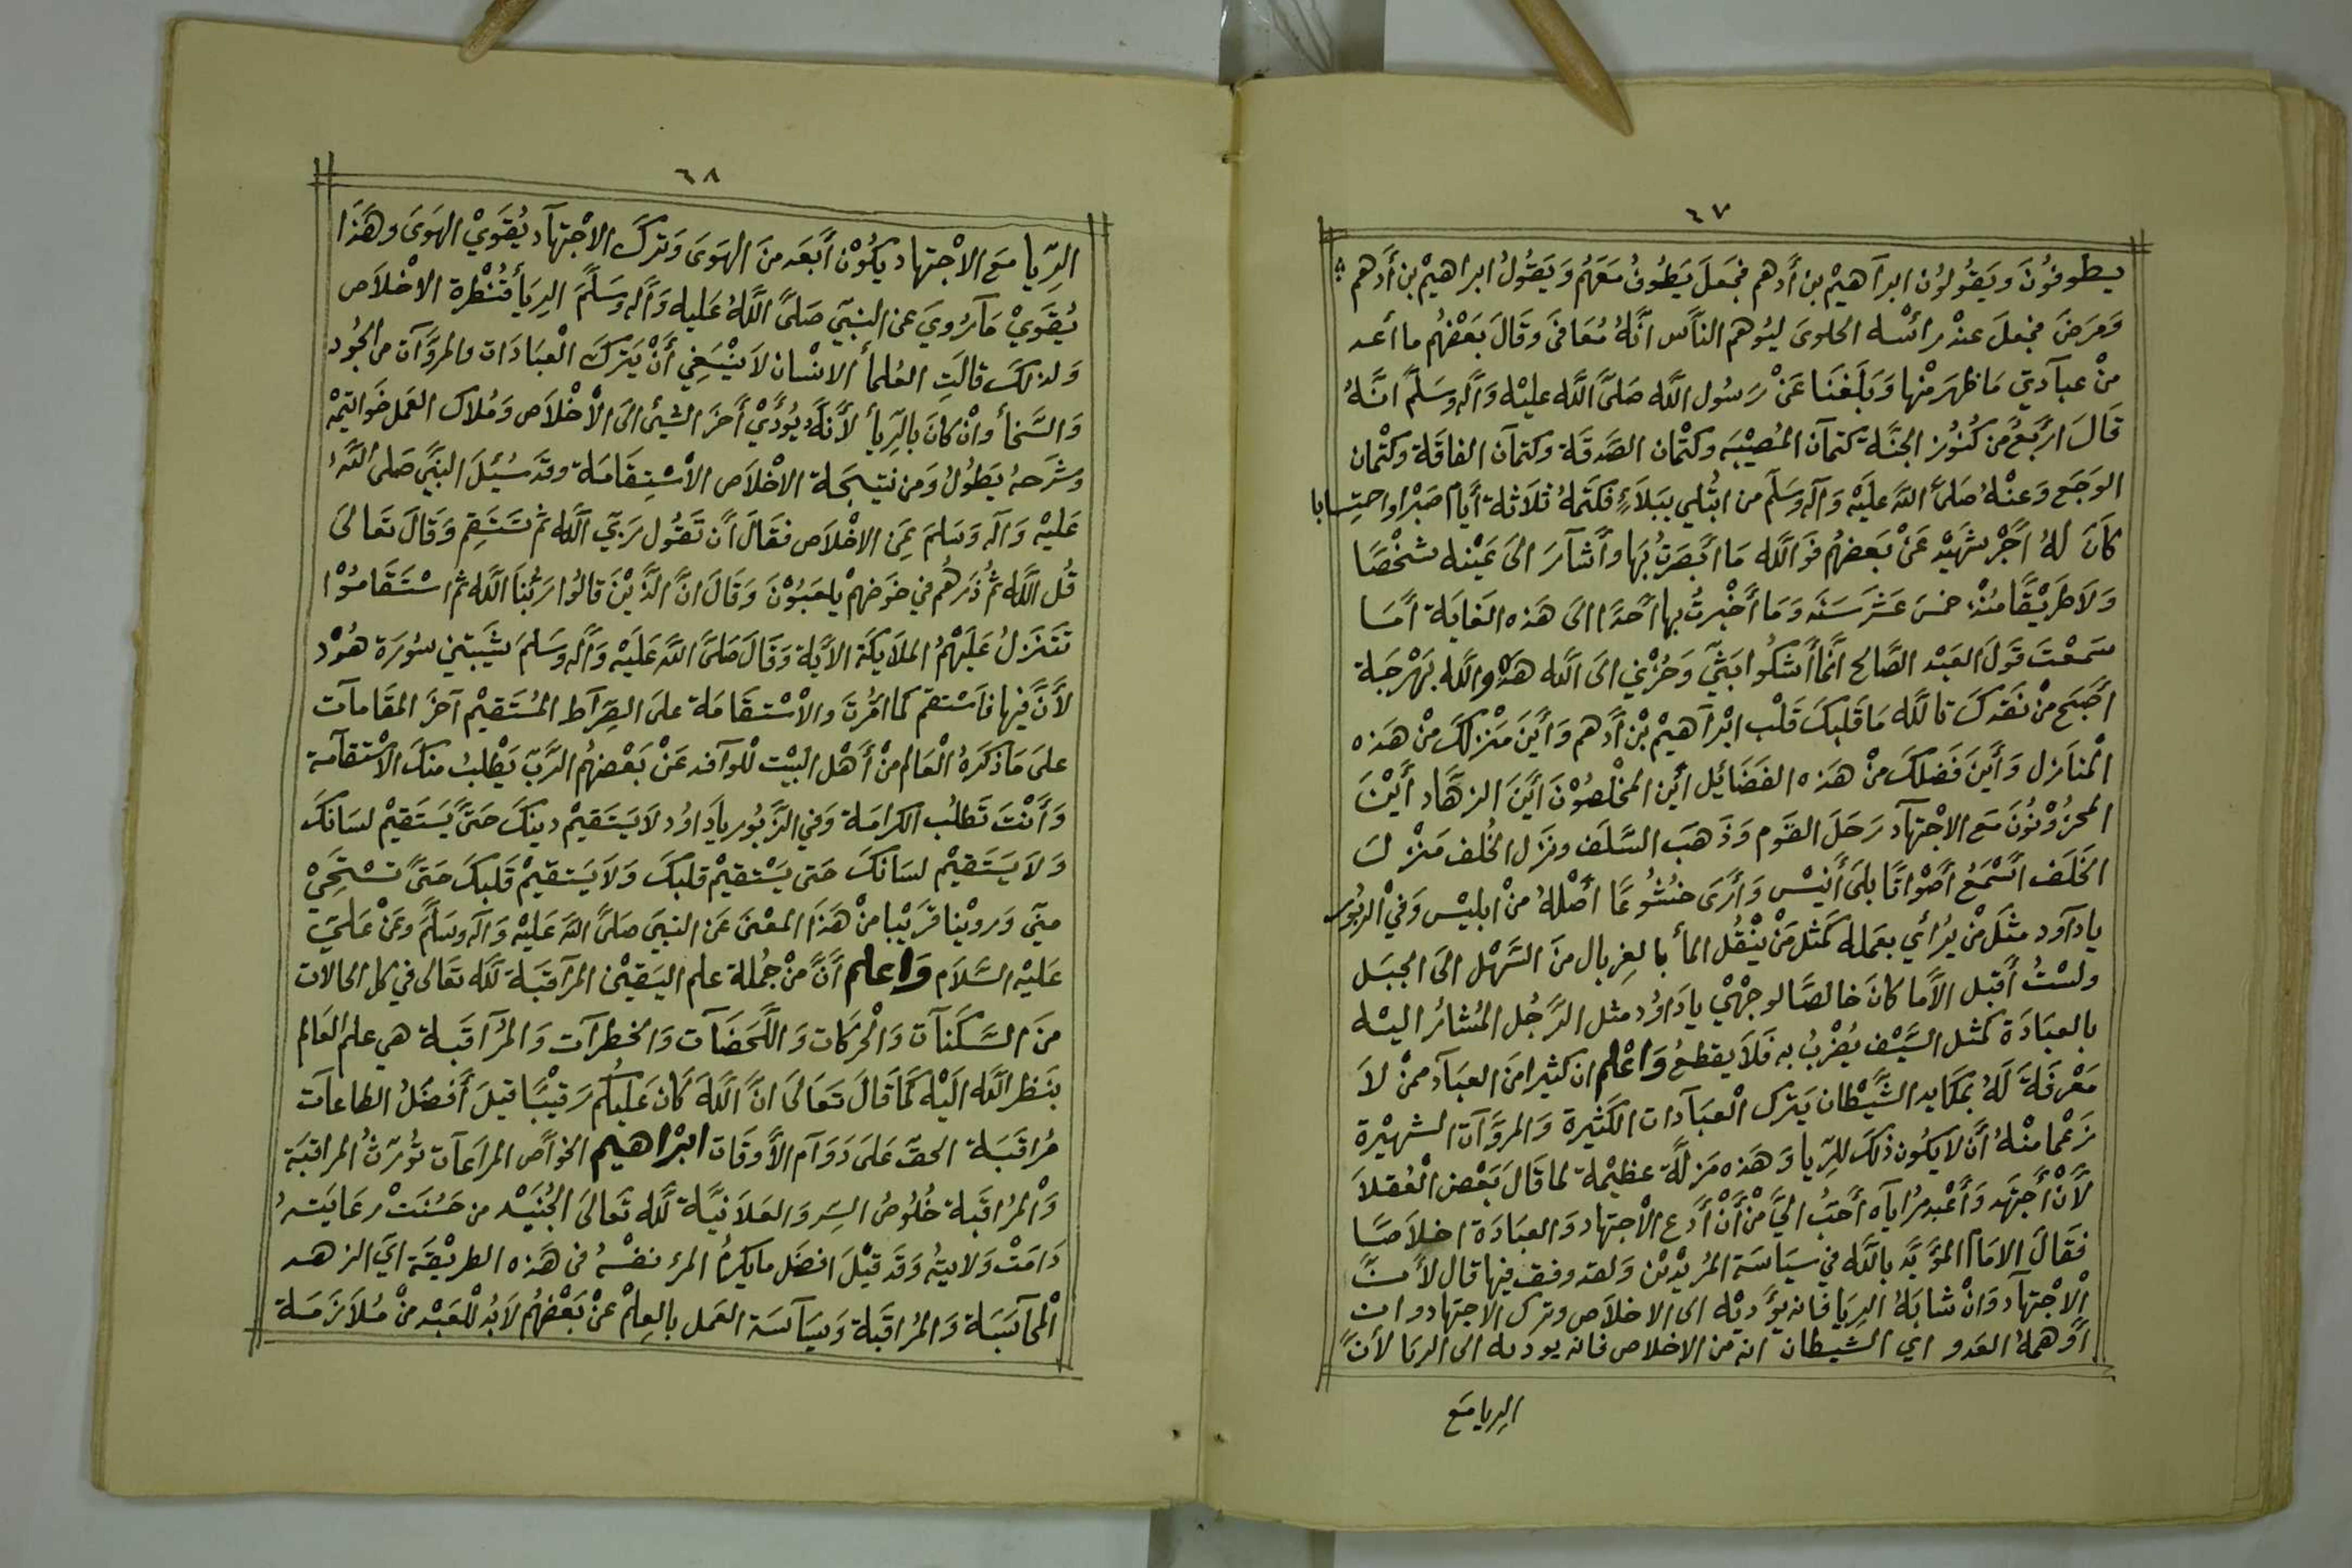 ٦٧
يطوفُونَ ويَقُولُون ابرآهيمْ بن أدهم فجَعَلَ يَطُوفُ مَعَهُم وَيَقُولُ ابراهيمْ بن أدهم
وَمَرضَ فجعلَ عندْ رأسْه الحلوىَ ليُوهمَ الناَس انَّهُ مُعَافىَ وقَالَ بَعْضُهُم ما أعد
منْ عبآدتي مَا ظهَرَ منْها وَبَلَغنَا عَنْ رَسُول اللَّه صَلىَّ اللَّه عليْه وَآله وَسَلمَّ انَّهُ
قَالَ اربَعٌ من كُنوُز الجنَّة كتمآن المُصيْبَه وكتْمان الصَّدقَة وكتمآن الفاقَة وكتْمان
الوجَع وَعنْهُ صَلىَّ اللَّه عليَهْ وَآله وَسَلمَّ من ابتُلي ببَلآءٍ فكَتَمهُ ثلاَثة أيَام صَبْرا واحتِسابا
كاَنَ لهُ أجْر شَهيْد عَنْ بَعضهُم فوَ اللَّه مَا ابْصَرتُ بهَا وأشآرَ الىَ عَيْنه شخْصًا
وَلاَ طرَيْقًا مُنْذ خمسَ عَشرَ سَنَه وَمَا أخْبرتُ بها أحَدًا الىَ هَذه الغايَة أمَا
سَمعْتَ قَولَ العَبْد الصَّالح انَّما أشكُوا بَثيّ وَحُزني الىَ اللَّه هَذه واللَّه بَهْرجَة
أصَبَح منْ نَقدكَ تاللَّه مَا قَلبكَ قَلْب ابْرآهيمْ بْن أدْهم وَأينَ مَنْزلكَ منْ هَذه
المْنَازل وَأينَ فَضلكَ منْ هَذه الفَضَائِل أينَ المخْلصُوْنَ أينَ الزهَّاد أيْنَ
المحزُوْنُونَ مَع الاجْتهآد رَحَلَ القَوم وَذَهَبَ السَّلفَ ونزَل الخُلف مَنْزلَ
الخَلفَ اسْمَعُ أصْواتًا بلىَ أنيْس وَأرَىَ خُشُوعًا أصْلهُ منْ ابليْس وَفيْ الزبُور
يا دآود مثلَ منْ يُرائي بعَمله كَمثل منْ ينْقُل المأ بالغربال منَ السَّهْل الىَ الجبَل
ولسْتُ أقبل الاَّ ما كانَ خَالصًا لوجْهيْ يا دَاوُد مثل الرَّجُل المُشائر اليْه
بالعبَادَة كمَثل السَّيْف يُضْربُ به فَلاَ يقطعُ وَاعْلم ان كثيرا منَ العبَآد ممنْ لاَ
مَعْرفَة لَهُ بمكَايد الشَّيْطان يَتركَ العْبَآدات الكَثيْرة وَالمروَّآت الشهيْرة
زَعْما منْهُ أنَّ لا يَكُون ذَلكَ للرّيا وَهَذه مَزلَّة عظيْمة لما قَالَ بَعْض العْقلاَ
لأنْ أجتَهد وَأعْبد مُرايَاه أحَبُ اليَّ منْ أنْ أدَع الاجْتهاد والعبَادَة اخلاَصًا
فقَالَ الامَام المْؤيَّد باللَّه في سيَاسَة المُريْديْن وَلقد وفق فيها قَال لأ منَّ
الاجْتهآد وَانْ شابَهُ الريَا فانه يؤَديْه الى الاخلاَص وترك الاجتهَاد وان
أوهمهُ العَدو اي الشيطان انه من الاخلاص فانه يوديه الى الريا لانَّ
الريا مَع
٦٨
الرّيا مَع الاجْتهاد يكُوْن أبعَد منَ الهوَىَ وَتركَ الاجْتهآد يُقَويْ الهوَىَ وهَذَا
يُقوَيْ مَا رُويَ عن النبيّ صَلىَّ اللَّهُ عَليه وَآله وسَلمَّ الريَا قُنْطرة الاخْلاَص
وَلذلكَ قالَتِ العُلمأ الانْسان لاَ ينْبَغي أنْ يتركَ العْبَادَات والمروَّآت من الجُود
وَالسَّخأ وانْ كانَ بالرّيأ لأنَّهُ يُؤَديْ أخَرَ الشيئ الىَ الأخْلاَص وَمُلاك العَمل خَوَاتيمْه
وشَرحهُ يَطُولُ وَمن نتيْجَة الاخْلاَص الاسْتِقَامَة وقَد سُئلَ النبيَّ صَلى اللَّهُ
عَليْه وَآله وَسَلمَ عَن الاخْلاَص فقَالَ أن تَقوُل رَبيّ اللَّه ثمَّ تستَقِم وَقَالَ تعَالىَ
قُل اللَّه ثُمَّ ذَرهُم في خوَضهمْ يلعَبُوْنَ وَقَالَ انَّ الذَّيْنَ قالُوا رَبُّنا اللَّه ثم استَقَامُوْا
تتَنزَلُ عَليَهْمُ الملاَيكَة الاَية وَقَالَ صَلىَّ اللَّه عَليَهْ وَآله وسَلمَ شيَّبتني سُورَة هُوْد
لأنَّ فيهَا فاَسْتقم كما امْرُتَ والاسْتقَامَة علىَ الصّرَآط المُستَقيمْ آخَر المقَامآت
علىَ مَا ذكرَهُ العْالم منْ أهْل البيْت للوآفد عَنْ بَعْضهُم الرَّبّ يَطْلبُ منكَ الاسْتقآمة
وَأنْتَ تَطلُب الكرامَة وَفي الزَّبُور يا دَاوُد لاَ يسَتَقيمْ دينكَ حَتىَّ يَستَقيمْ لسَانكَ
وَلاَ يسَتَقيمْ لسَانكَ حَتى يسْتقيمْ قلبكَ وَلاَ يَستقيمْ قَلبكَ حَتىَّ تسْتَحِيْ
مَنيّ وَروْينا قرَيْبا منْ هَذَا المعْنىَ عَن النبيَ صَلىَّ اللَّه عَليَهْ وَآله وسَلمَّ وعَنْ عَليّ
عَليْه السَّلاَم وَاعلم أنَّ منْ جُملة علم اليَقيْن المرَاقبَة للَّه تعَالى في كل الحالات
منَ السَّكَنآت وَالْحركَات وَاللَّحَضَآت وَالخطرآت وَالمُرآقَبة هي علم العَالم
بنَظر اللَّه اليْه كَما قَالَ تَعَالىَ انَّ اللَّه كَان عَليْكُم رَقيْبًا قيلَ أفضَلُ الطاعآت
مُراقَبَة الحَقّ عَلىَ دَوَآم الأوقَات ابْراهيم الخوآص المرآعآت تُورثُ المراقبَة
وَالْمرُاقَبة خُلُوصُ السِر وَالعَلاَنيَّة للَّه تَعالىَ الجُنَيْد من حَسُنَتْ رعَايتَهُ
دَامَتْ وَلايتهُ وَقَد قيْلَ افضَل ما يكرمُ المرء نفسْهُ في هَذه الطريْقَة ايَ الزهد
المْحآسَبَة وَالمُراقَبة وَسيَآسَة العَمل بالعِلمْ عَنْ بَعْضهُم لاَبُد للْعَبْد منْ مُلاَزَمَة